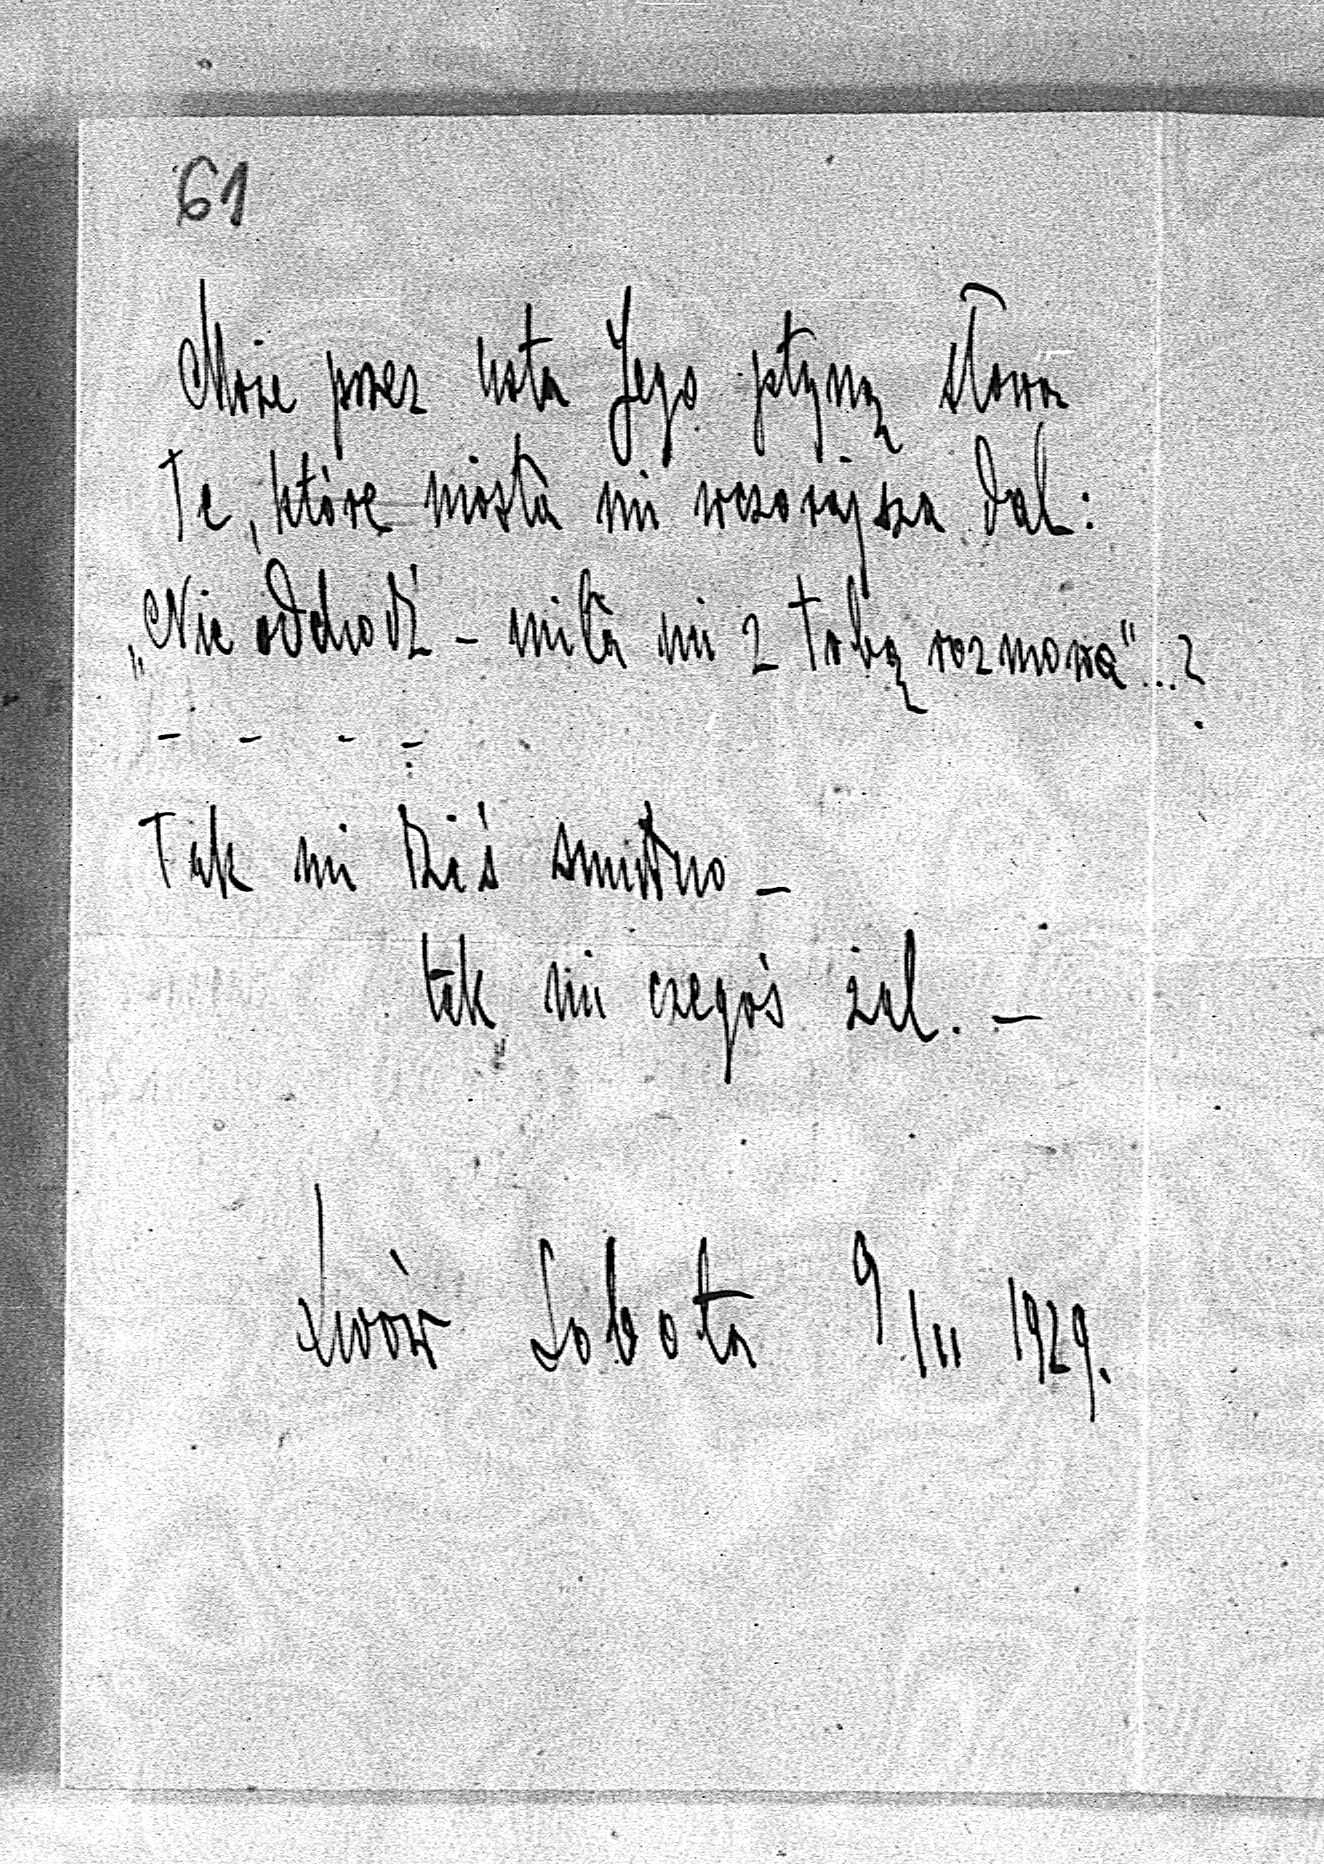 61
Może przez usta Jego płyną słowa
Te, które niosła mi wczorajsza dal:
„Nie odchodź – miła mi z tobą rozmowa"...?
– – – –
Tak mi dziś smutno –
tak mi czegoś żal. –
Lwów Sobota 9/III 1929.